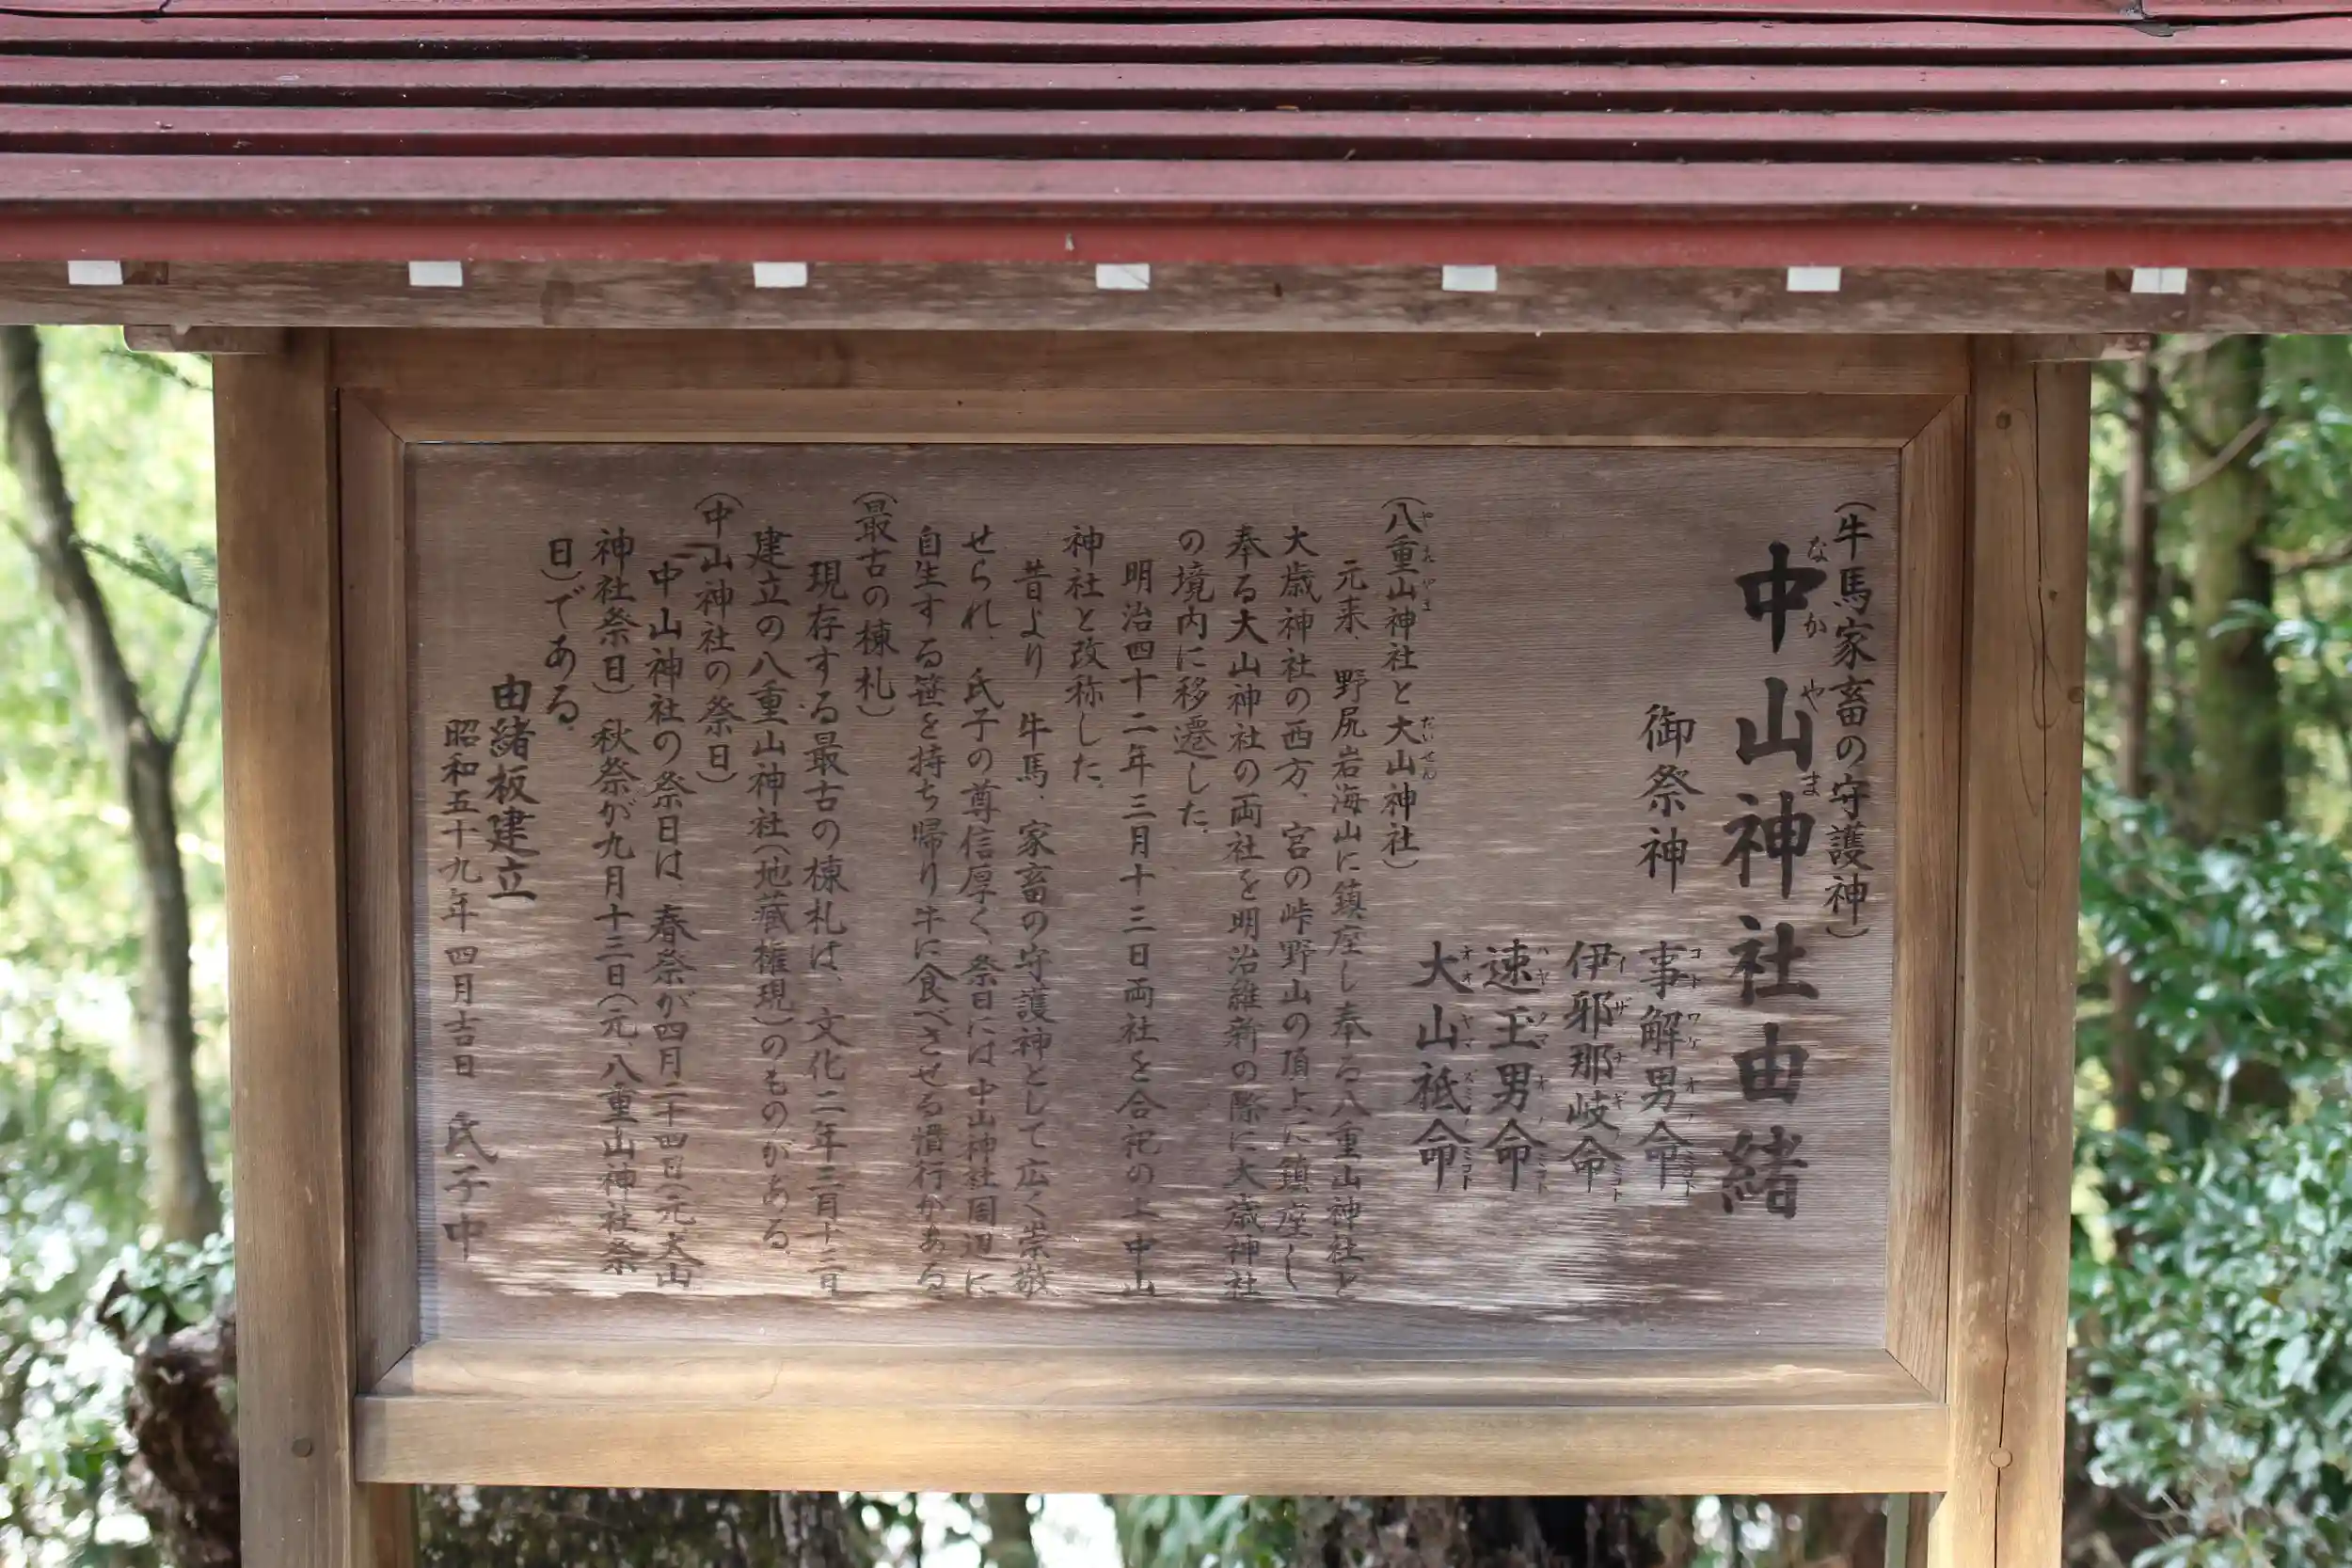 (牛馬家畜の守護神)
中山神社由緒
なかやま
御祭神
事解男命
コトワケオノミコト
伊邪那岐命
イザナギノミコト
速玉男命
ハヤタマオノミコト
大山祇命
オオヤマズミノミコト
(八重山神社と大山神社)
やえやま
だいせん
元来、野尻岩海山に鎮座し奉る八重山神社と
大歳神社の西方、宮の峠野山の頂上に鎮座し
奉る大山神社の両社を明治維新の際に大歳神社
の境内に移遷した。
明治四十二年三月十三日両社を合祀の上、中山
神社と改称した。
昔より、牛馬、家畜の守護神として広く崇敬
せられ、氏子の尊信厚く、祭日には中山神社周辺に
自生する笹を持ち帰り牛に食べさせる慣行がある。
(最古の棟札)
現存する最古の棟札は、文化二年三月十三日
建立の八重山神社(地蔵権現)のものがある。
(中山神社の祭日)
中山神社の祭日は、春祭が四月二十四日(元、大山
神社祭日)秋祭が九月十三日(元、八重山神社祭
日)である。
由緒板建立
昭和五十九年四月吉日 氏子中